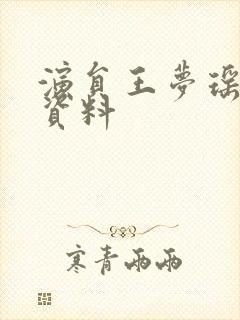 演員王夢瑶
資料
寒青雨雨